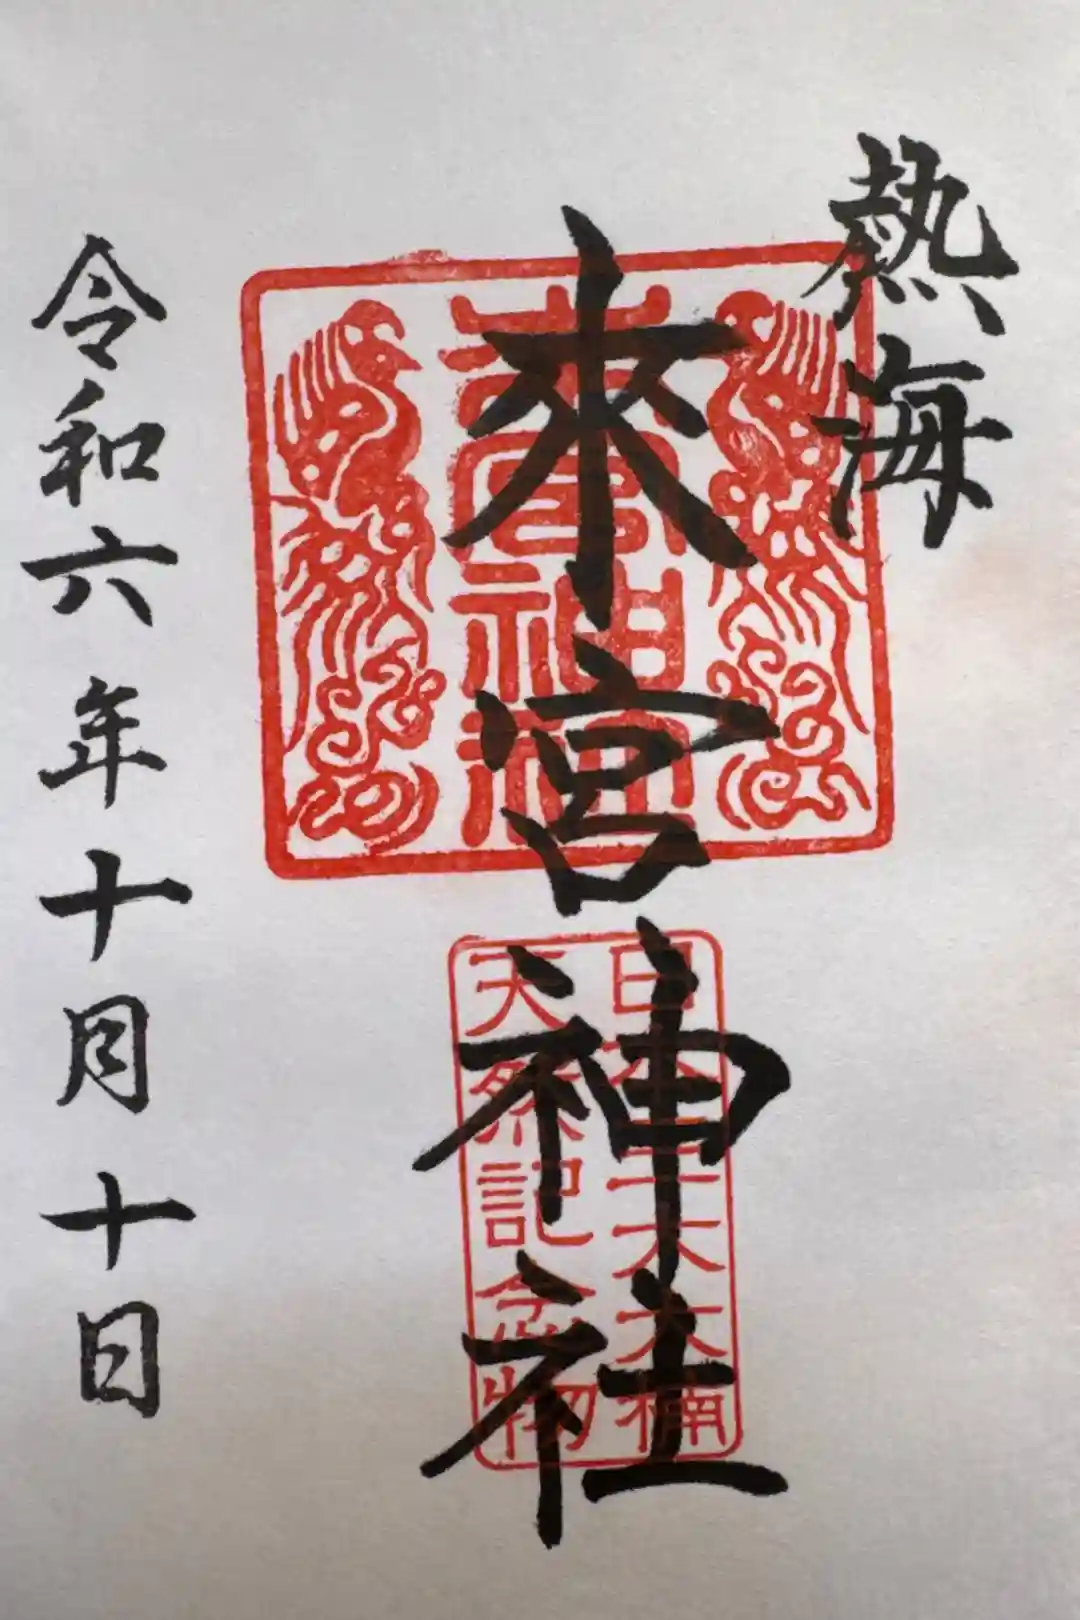 熱海
來宮神社
來宮神社
日本三大大楠
天然記念物
令和六年十月十日